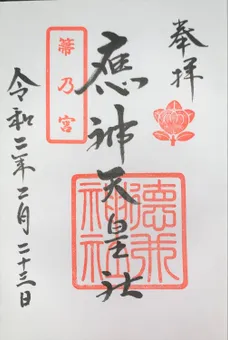 奉拝
應神天皇社
德兼神社
箒乃宮
令和二年二月二十三日